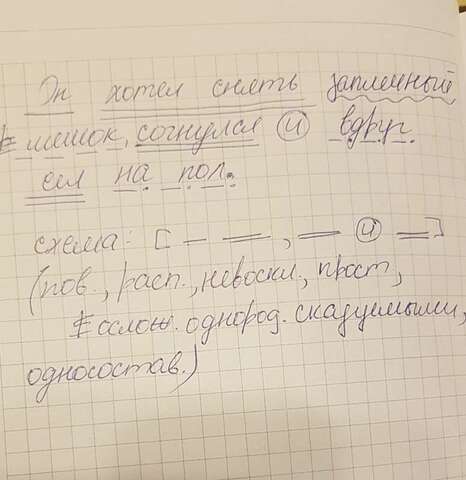 Он хотел снять заплечный
мешок, согнулся и вдруг
сел на пол.
схема: [— =, = и =]
(пов., расп., невоскл., прост,
ослож. однород. сказуемыми,
односостав.)